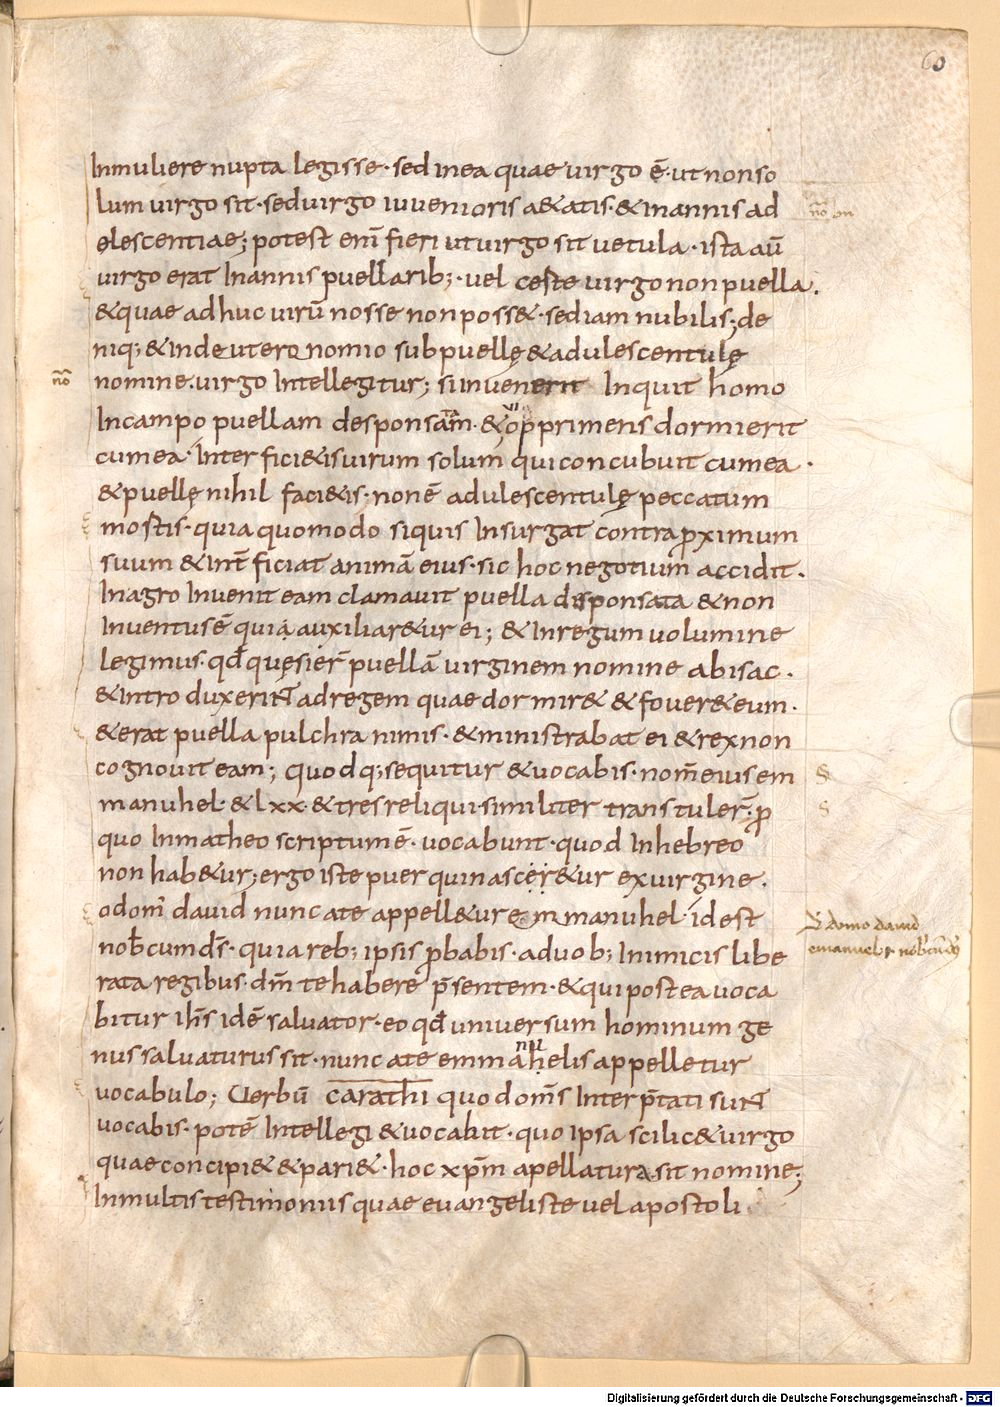 60
Inmuliere nupta legisse · sed inea quae uirgo ē · ut nonso
lum uirgo sit · sed uirgo iuuenioris a&atis · & inannis ad
elescentiae; potest enī fieri ut uirgo sit uetula · ista aū
uirgo erat Inannis puellarib; · uel certe uirgo non puella ·
& quae adhuc uirū nosse non poss& · sed iam nubilis; de
niq; & Indeuteronomio sub puellę & adulescentulę
nō
nomine · uirgo Intellegitur; si inuenerit Inquit homo
Incampo puellam desponsatam · & opprimens dormierit
cumea · Interfici&is uirum solum qui concubuit cumea ·
& puellę nihil faci&is · non ē adulescentulę peccatum
mortis · quia quomodo siquis Insurgat contra ꝓximum
suum & Int̄ficiat animā eius · sic hoc negotium accidit ·
Inagro Inuenit eam clamauit puella disponsata & non
Inuentus ē qui auxiliar&ur ei; & Inregum uolumine
legimus · qđ quęsier̄ puellā uirginem nomine abisac ·
& introduxerint ad regem quae dormir& & fouer& eum ·
& erat puella pulchra nimis · & ministrabat ei & rex non
cognouit eam; quodq; sequitur & uocabis · nom̄ eius em
manuhel · & lxx · & tres reliqui · similiter transtuler̄ · ꝓ
quo Inmatheo scriptum ē · uocabunt · quod Inhebreo
non hab&ur; ergo iste puer qui nascer&ur ex uirgine ·
o dom' dauid nunc ate appell&ur emmanuhel · id est
nob̄ cum ds̄ · quia reb; ipsis ꝓbabis · a duob; Inimicis libe
rata regibus · dm̄ te habere p̄sentem · & qui postea uoca
bitur ih̄s id ē saluator · eo qđ uniuersum hominum ge
nus saluaturus sit · nunc ate emmanuhelis appelletur
uocabulo; Uerbū carathi quod om̄s Interp̄tati sunt
uocabis · potē Intellegi & uocabit · quo ipsa scilic& uirgo
quae concipi& & pari& · hoc xp̄m apellatura sit nomine;
Inmultis testimoniis quae euangeliste uel apostoli
Digitalisierung gefördert durch die Deutsche Forschungsgemeinschaft - DFG